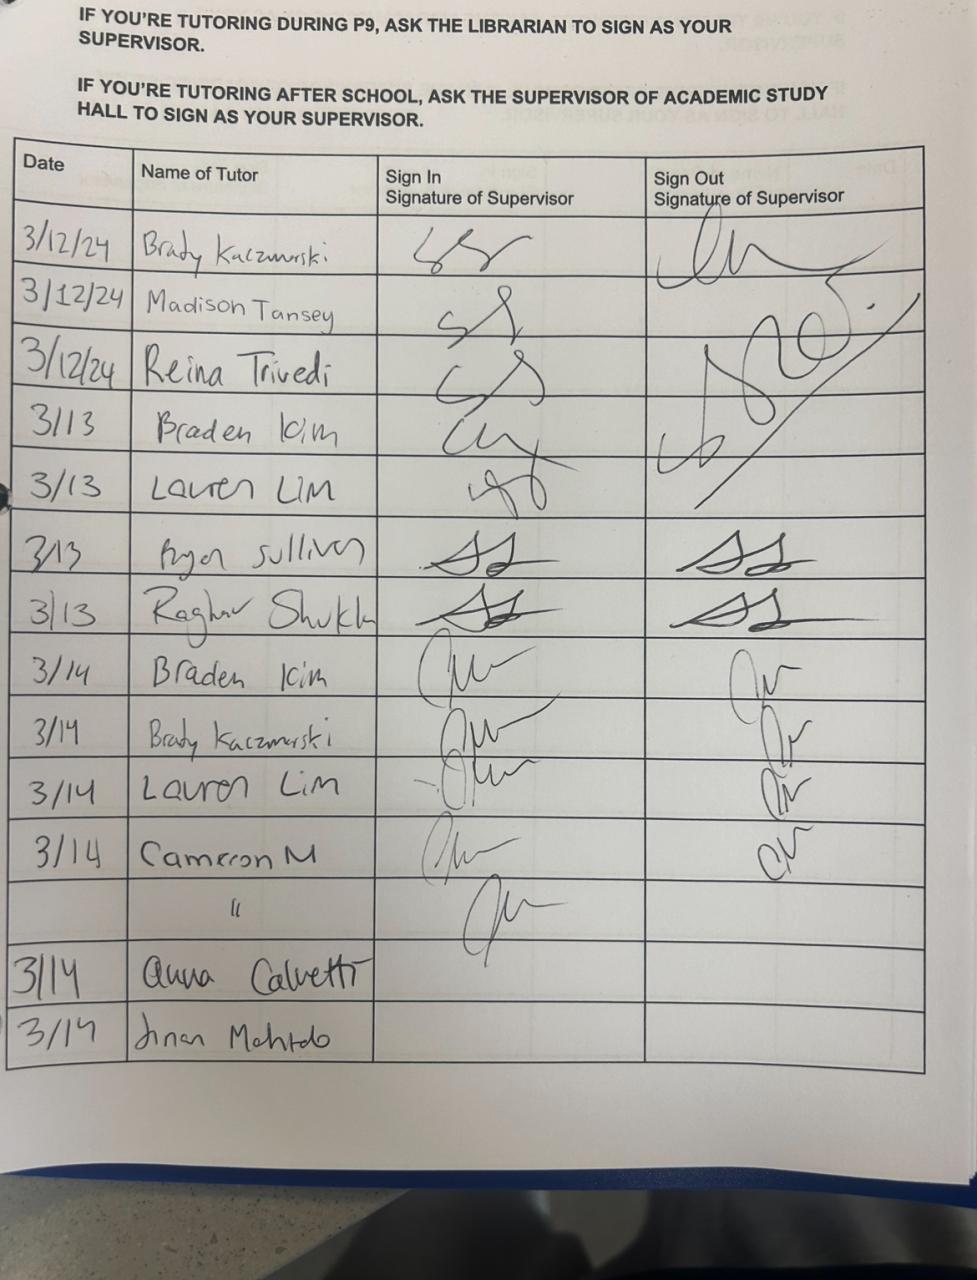 IF YOU'RE TUTORING DURING P9, ASK THE LIBRARIAN TO SIGN AS YOUR
SUPERVISOR.
IF YOU'RE TUTORING AFTER SCHOOL, ASK THE SUPERVISOR OF ACADEMIC STUDY
HALL TO SIGN AS YOUR SUPERVISOR.
Date Name of Tutor Sign In Signature of Supervisor Sign Out Signature of Supervisor
3/12/24 Brady Kaczmarski
3/12/24 Madison Tansey
3/12/24 Reina Trivedi
3/13 Braden Kim
3/13 Lauren LIM
3/13 Ryan Sullivan
3/13 Raghav Shukla
3/14 Braden Kim
3/14 Brady Kaczmarski
3/14 Lauren Lim
3/14 Cameron M
"
3/14 Anna Calvetti
3/14